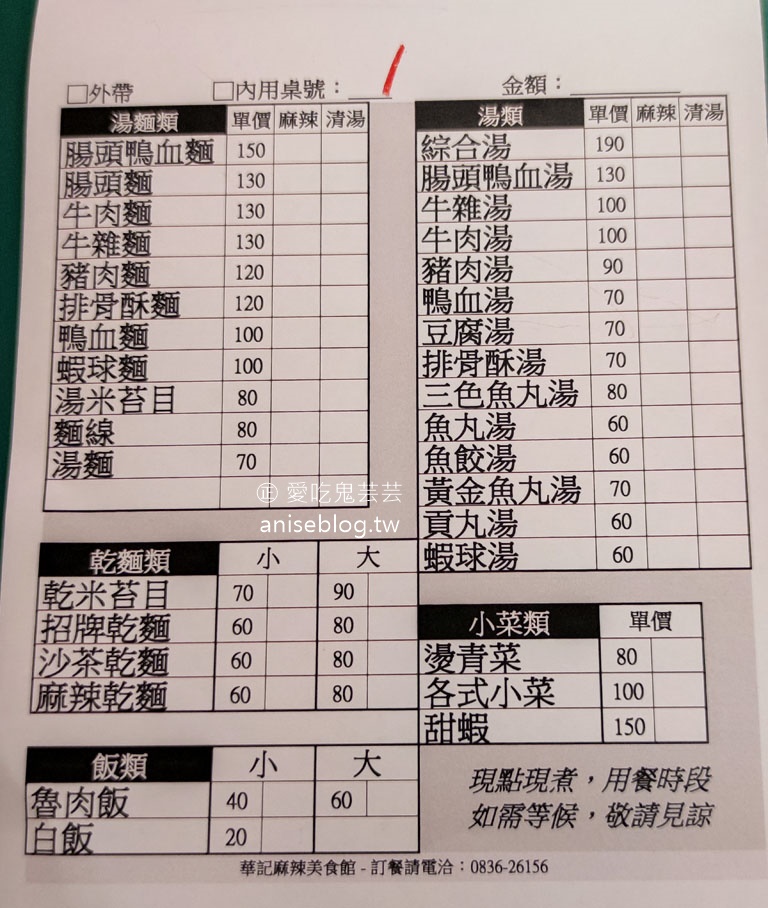 □外帶 □內用桌號：____ 金額：________
湯麵類 單價 麻辣 清湯
腸頭鴨血麵 150
腸頭麵 130
牛肉麵 130
牛雜麵 130
豬肉麵 120
排骨酥麵 120
鴨血麵 100
蝦球麵 100
湯米苔目 80
麵線 80
湯麵 70
湯類 單價 麻辣 清湯
綜合湯 190
腸頭鴨血湯 130
牛雜湯 100
牛肉湯 100
豬肉湯 90
鴨血湯 70
豆腐湯 70
排骨酥湯 70
三色魚丸湯 80
魚丸湯 60
魚餃湯 60
黃金魚丸湯 70
貢丸湯 60
蝦球湯 60
正 愛吃鬼芸芸
aniseblog.tw
乾麵類 小 大
乾米苔目 70 90
招牌乾麵 60 80
沙茶乾麵 60 80
麻辣乾麵 60 80
小菜類 單價
燙青菜 80
各式小菜 100
甜蝦 150
飯類 小 大
魯肉飯 40 60
白飯 20
現點現煮，用餐時段
如需等候，敬請見諒
華記麻辣美食館 - 訂餐請電洽：0836-26156